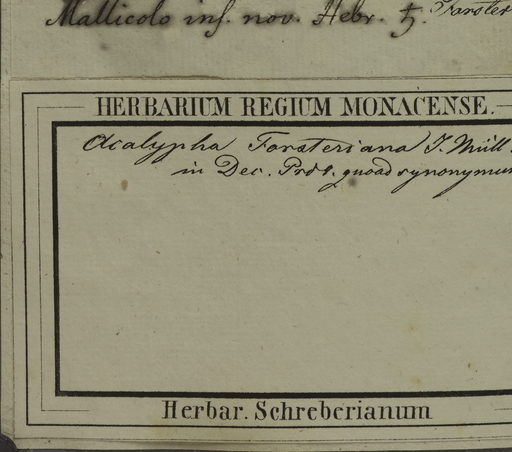 Mallicolo ins. nov. Hebr. ♄. Forster
HERBARIUM REGIUM MONACENSE.
Acalypha Forsteriana J. Müll.
in Dec. Prdr. quoad synonymum
Herbar. Schreberianum